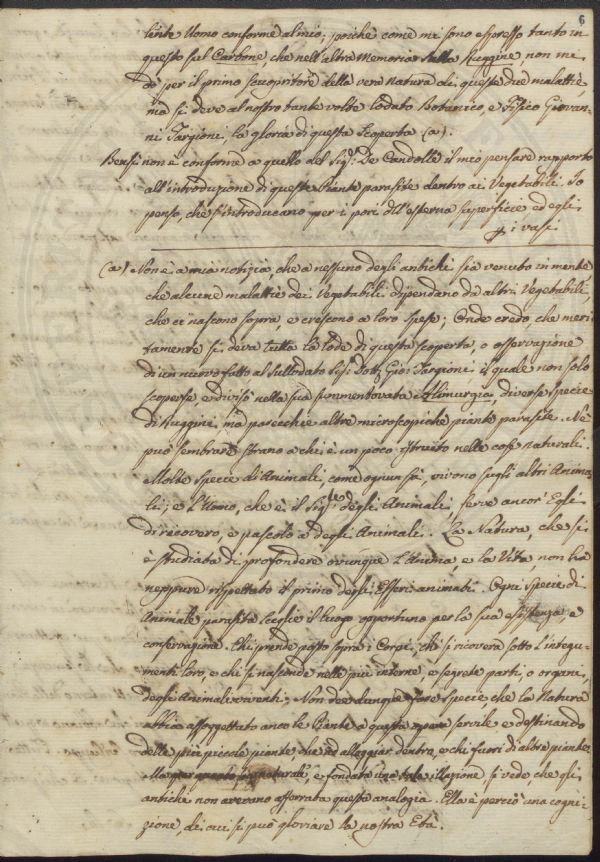 6
lente Uomo conforme al mio; poichè come mi sono espresso tanto in
questo sul Carbone, che nell'altra Memoria sulla Ruggine, non mi
dò per il primo scuopritore della vera natura di queste due malattie
ma si deve al nostro tante volte lodato Botanico, e Fisico Giovan-
ni Targioni la gloria di questa scoperta (a).
Bensì non è conforme a quello del Sig.r De Candolle il mio pensare rapporto
all'introduzione di queste Piante parasite dentro ai Vegetabili. Io
penso, che s'introducano per i pori dell'esterna superficie ed egli
p. i vasi
(a) Non è a mia notizia, che a nessuno degli antichi sia venuto in mente
che alcune malattie dei Vegetabili dipendano da altri Vegetabili
che ci nascono sopra, e crescono a loro spese; Onde credo, che meri-
tamente si deva tutta la lode di questa scoperta, o osservazione
di un nuovo fatto al sullodato Sig.r Dott. Gio: Targioni il quale non solo
scoperse e divisò nella sua summentovata Alimurgia, diverse specie
di Ruggini, ma parecchie altre microscopiche piante parasite. Nè
può sembrare strano a chi è un poco istruito nelle cose naturali.
Molte specie di Animali, come ognun sà, vivono sugli altri Anima-
li; e l'Uomo, che è il Sig.re degli Animali, serve ancor Egli
di ricovero, e pascolo a degli Animali. La Natura, che si
è studiata di profondere ovunque l'Anima, e la Vita, non ha
neppure rispettato il primo degli Esseri animati. Ogni specie di
Animale parasita sceglie il luogo opportuno per la sua esistenza e
conservazione. Chi prende posto sopra i Corpi, chi si ricovera sotto l'integu-
menti loro, e chi si nasconde nelle più interne, e segrete parti, o organi,
degli Animali viventi; Non dee dunque fare specie, che la Natura
abbia assoggettato anco le Piante a questa opera servile e destinando
delle più piccole piante, che ad alloggiar dentro, e chi fuori di altre piante.
Ma naturale, e fondata una tale illazione si vede che gli
antichi non avevano afferrata questa analogia. Ella è perciò una cogni-
zione, di cui si può gloriare la nostra Età.